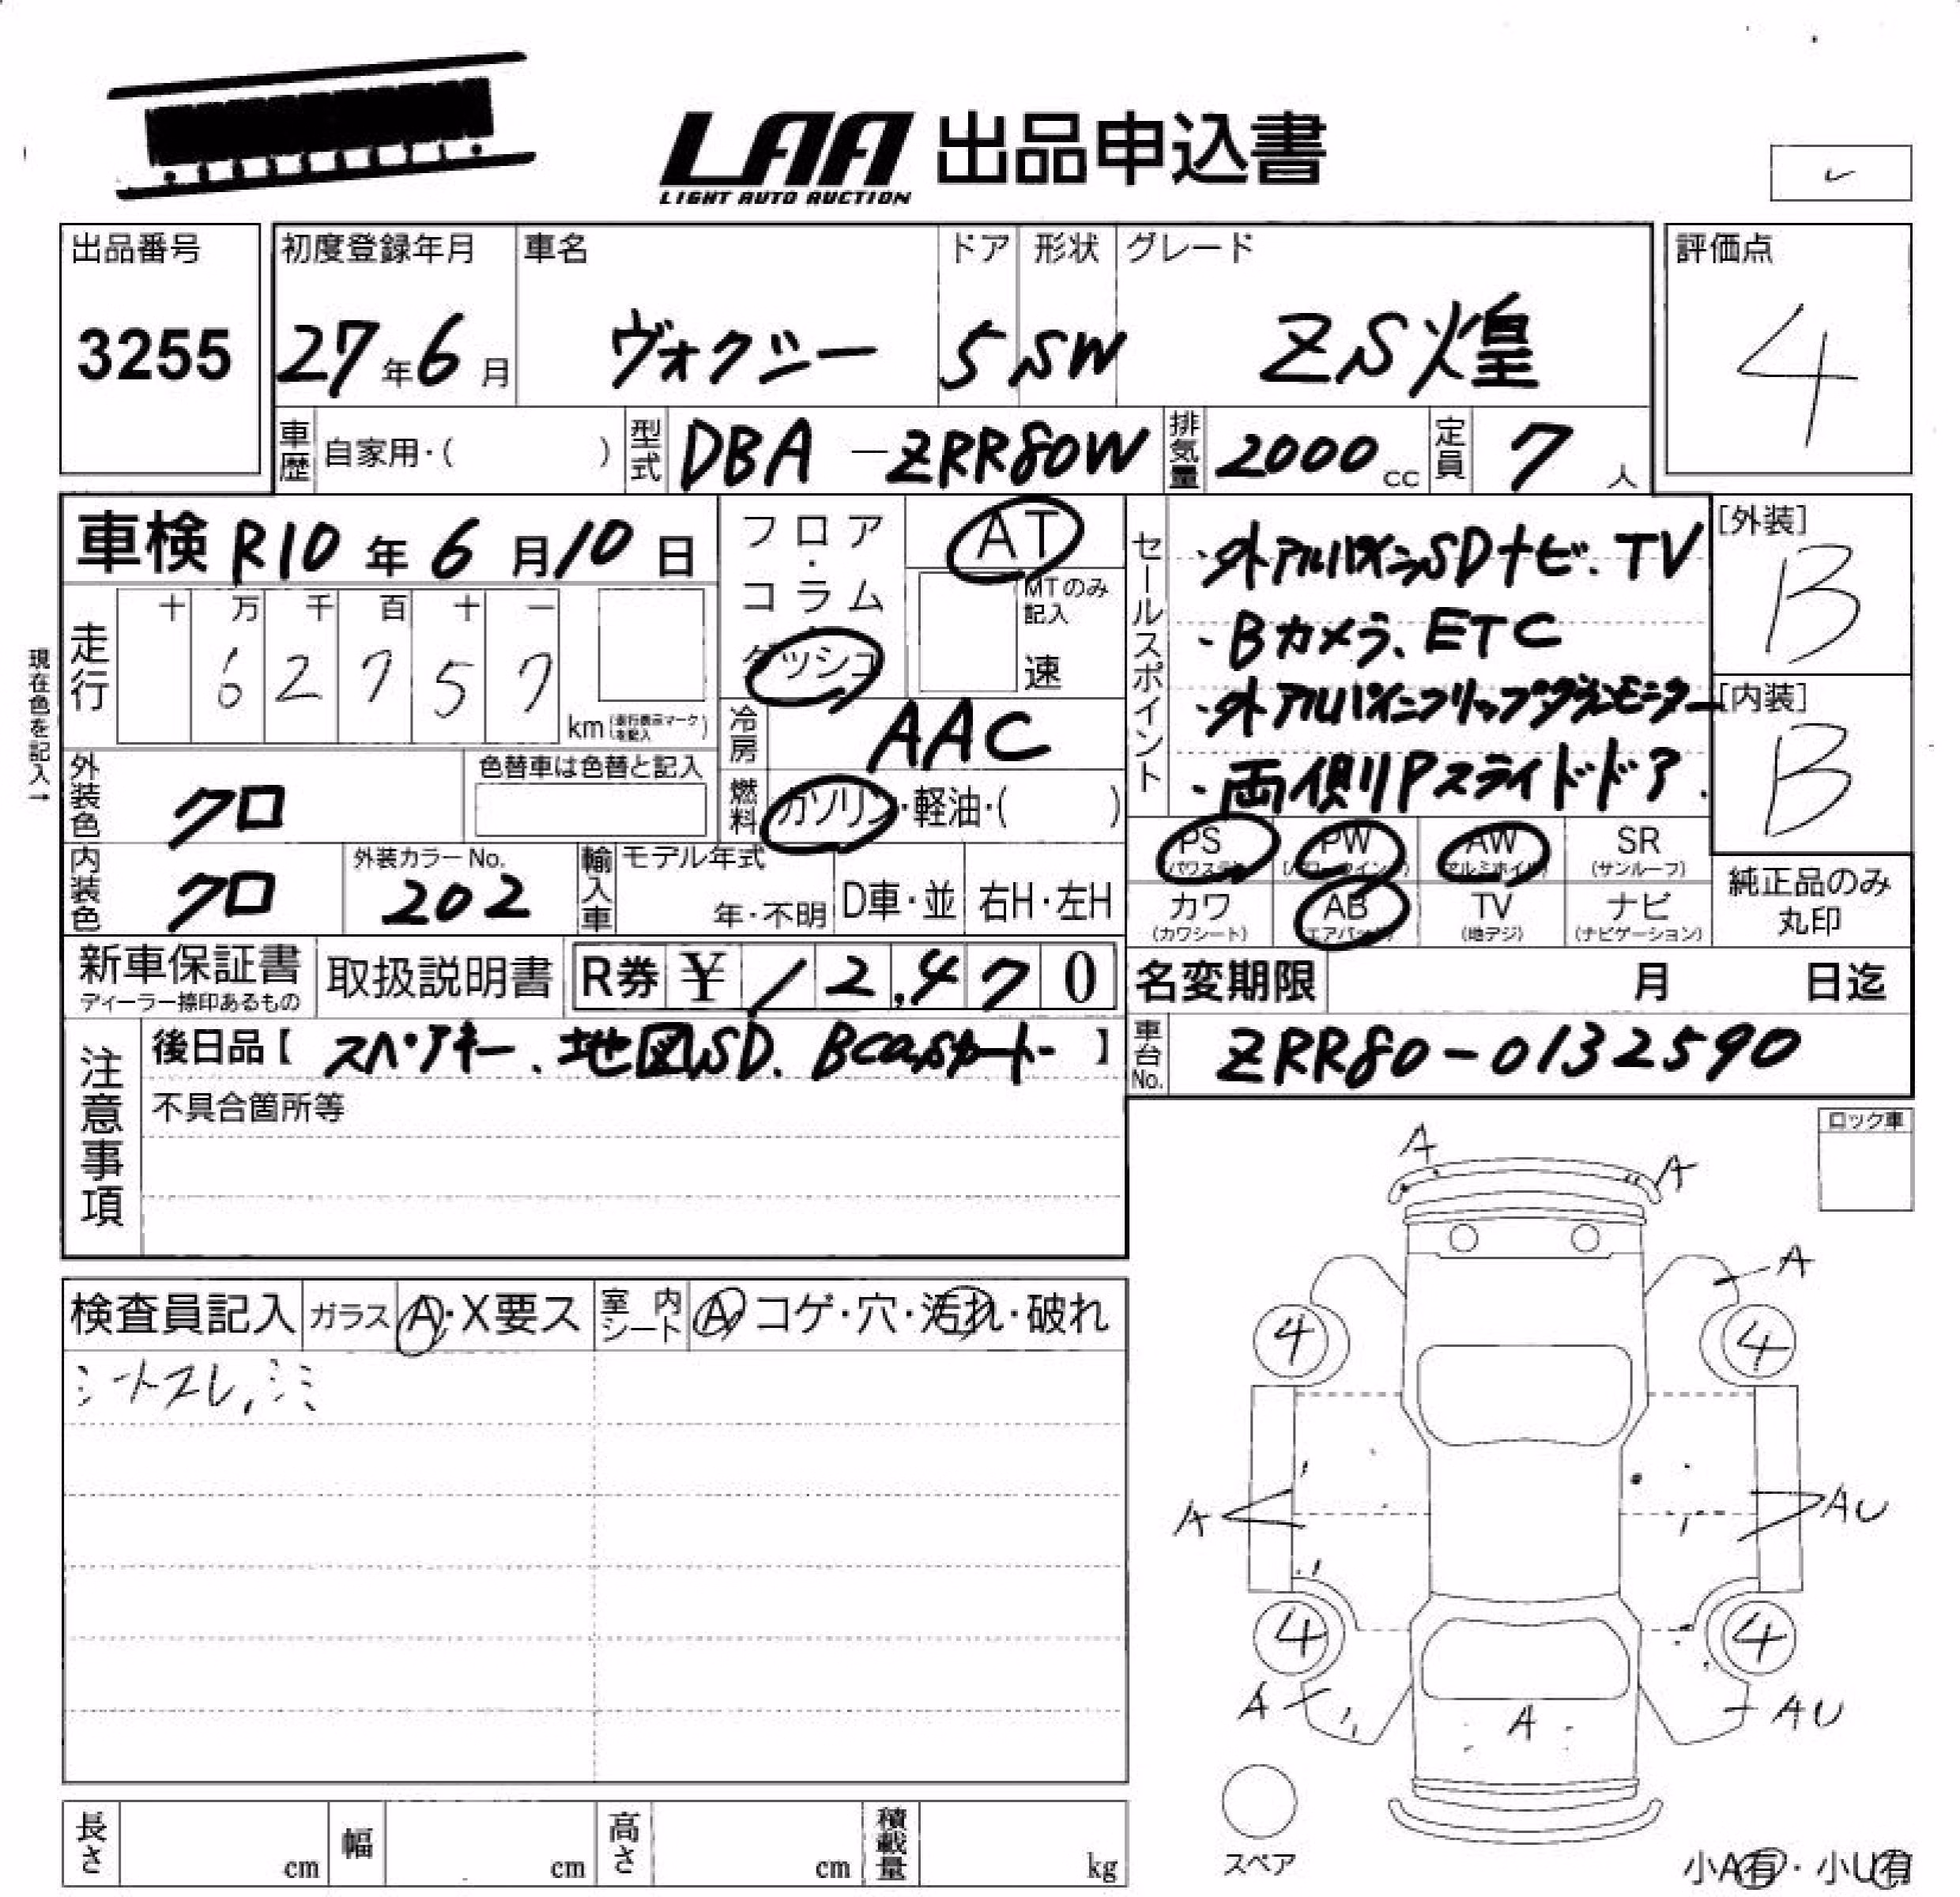 LAA 出品申込書
LIGHT AUTO AUCTION
出品番号 初度登録年月 車名 ドア 形状 グレード 評価点
3255 27年6月 ヴォクシー 5 SW ZS煌 4
車歴 自家用・( ) 型式 DBA -ZRR80W 排気量 2000cc 定員 7人
車検 R10年6月10日
フロア・コラム ダッシュ
AT
MTのみ記入
速
セールスポイント
・外アルパインSDナビ、TV
・Bカメラ、ETC
・外アルパインフリップダウンモニター
・両側Pスライドドア
[外装]
B
[内装]
B
現在色を記入→
走行 十 万 千 百 十 一
6 2 7 5 7
km(走行表示マークを記入)
冷房 AAC
外装色 クロ
色替車は色替と記入
燃料 ガソリン・軽油・( )
PS AW PW SR
(パワステ) (パワーウインドウ) (アルミホイル) (サンルーフ)
カワ AB TV ナビ
(カワシート) (エアバック) (地デジ) (ナビゲーション)
純正品のみ
丸印
内装色 クロ
外装カラーNo.
202
輸入車 モデル年式
年・不明 D車・並 右H・左H
新車保証書
ディーラー捺印あるもの
取扱説明書
R券 ¥ 12,470
名変期限 月 日迄
注意事項
後日品【スペアキー、地図SD、Bcasカード】
車台No. ZRR80-0132590
不具合箇所等
ロック車
検査員記入 ガラス A・X要ス 室内シート A コゲ・穴・汚れ・破れ
シートスレ、シミ
A
A
A
4 4
A AU
4 4
A AU
A
スペア
小A有・小U有
長さ cm 幅 cm 高さ cm 積載量 kg